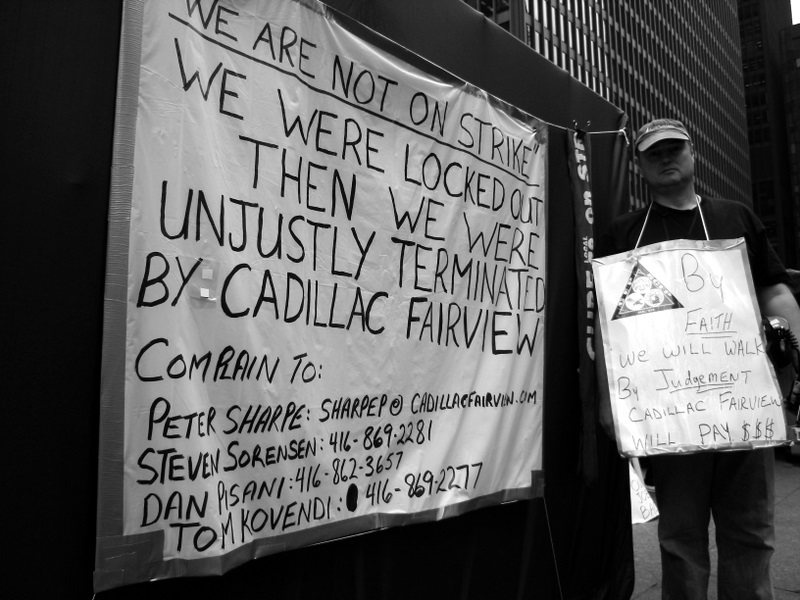 "WE ARE NOT ON STRIKE"
WE WERE LOCKED OUT
THEN WE WERE
UNJUSTLY TERMINATED
BY CADILLAC FAIRVIEW
COMPLAIN TO:
PETER SHARPE: SHARPEP@CADILLACFAIRVIEW.COM
STEVEN SORENSEN: 416-869-2281
DAN PISANI: 416-862-3657
TOM KOVENDI: 416-869-2277
CUPE
LOCAL
ON STR
By
FAITH
WE WILL WALK
By Judgement
CADILLAC FAIRVIEW
WILL PAY $$$